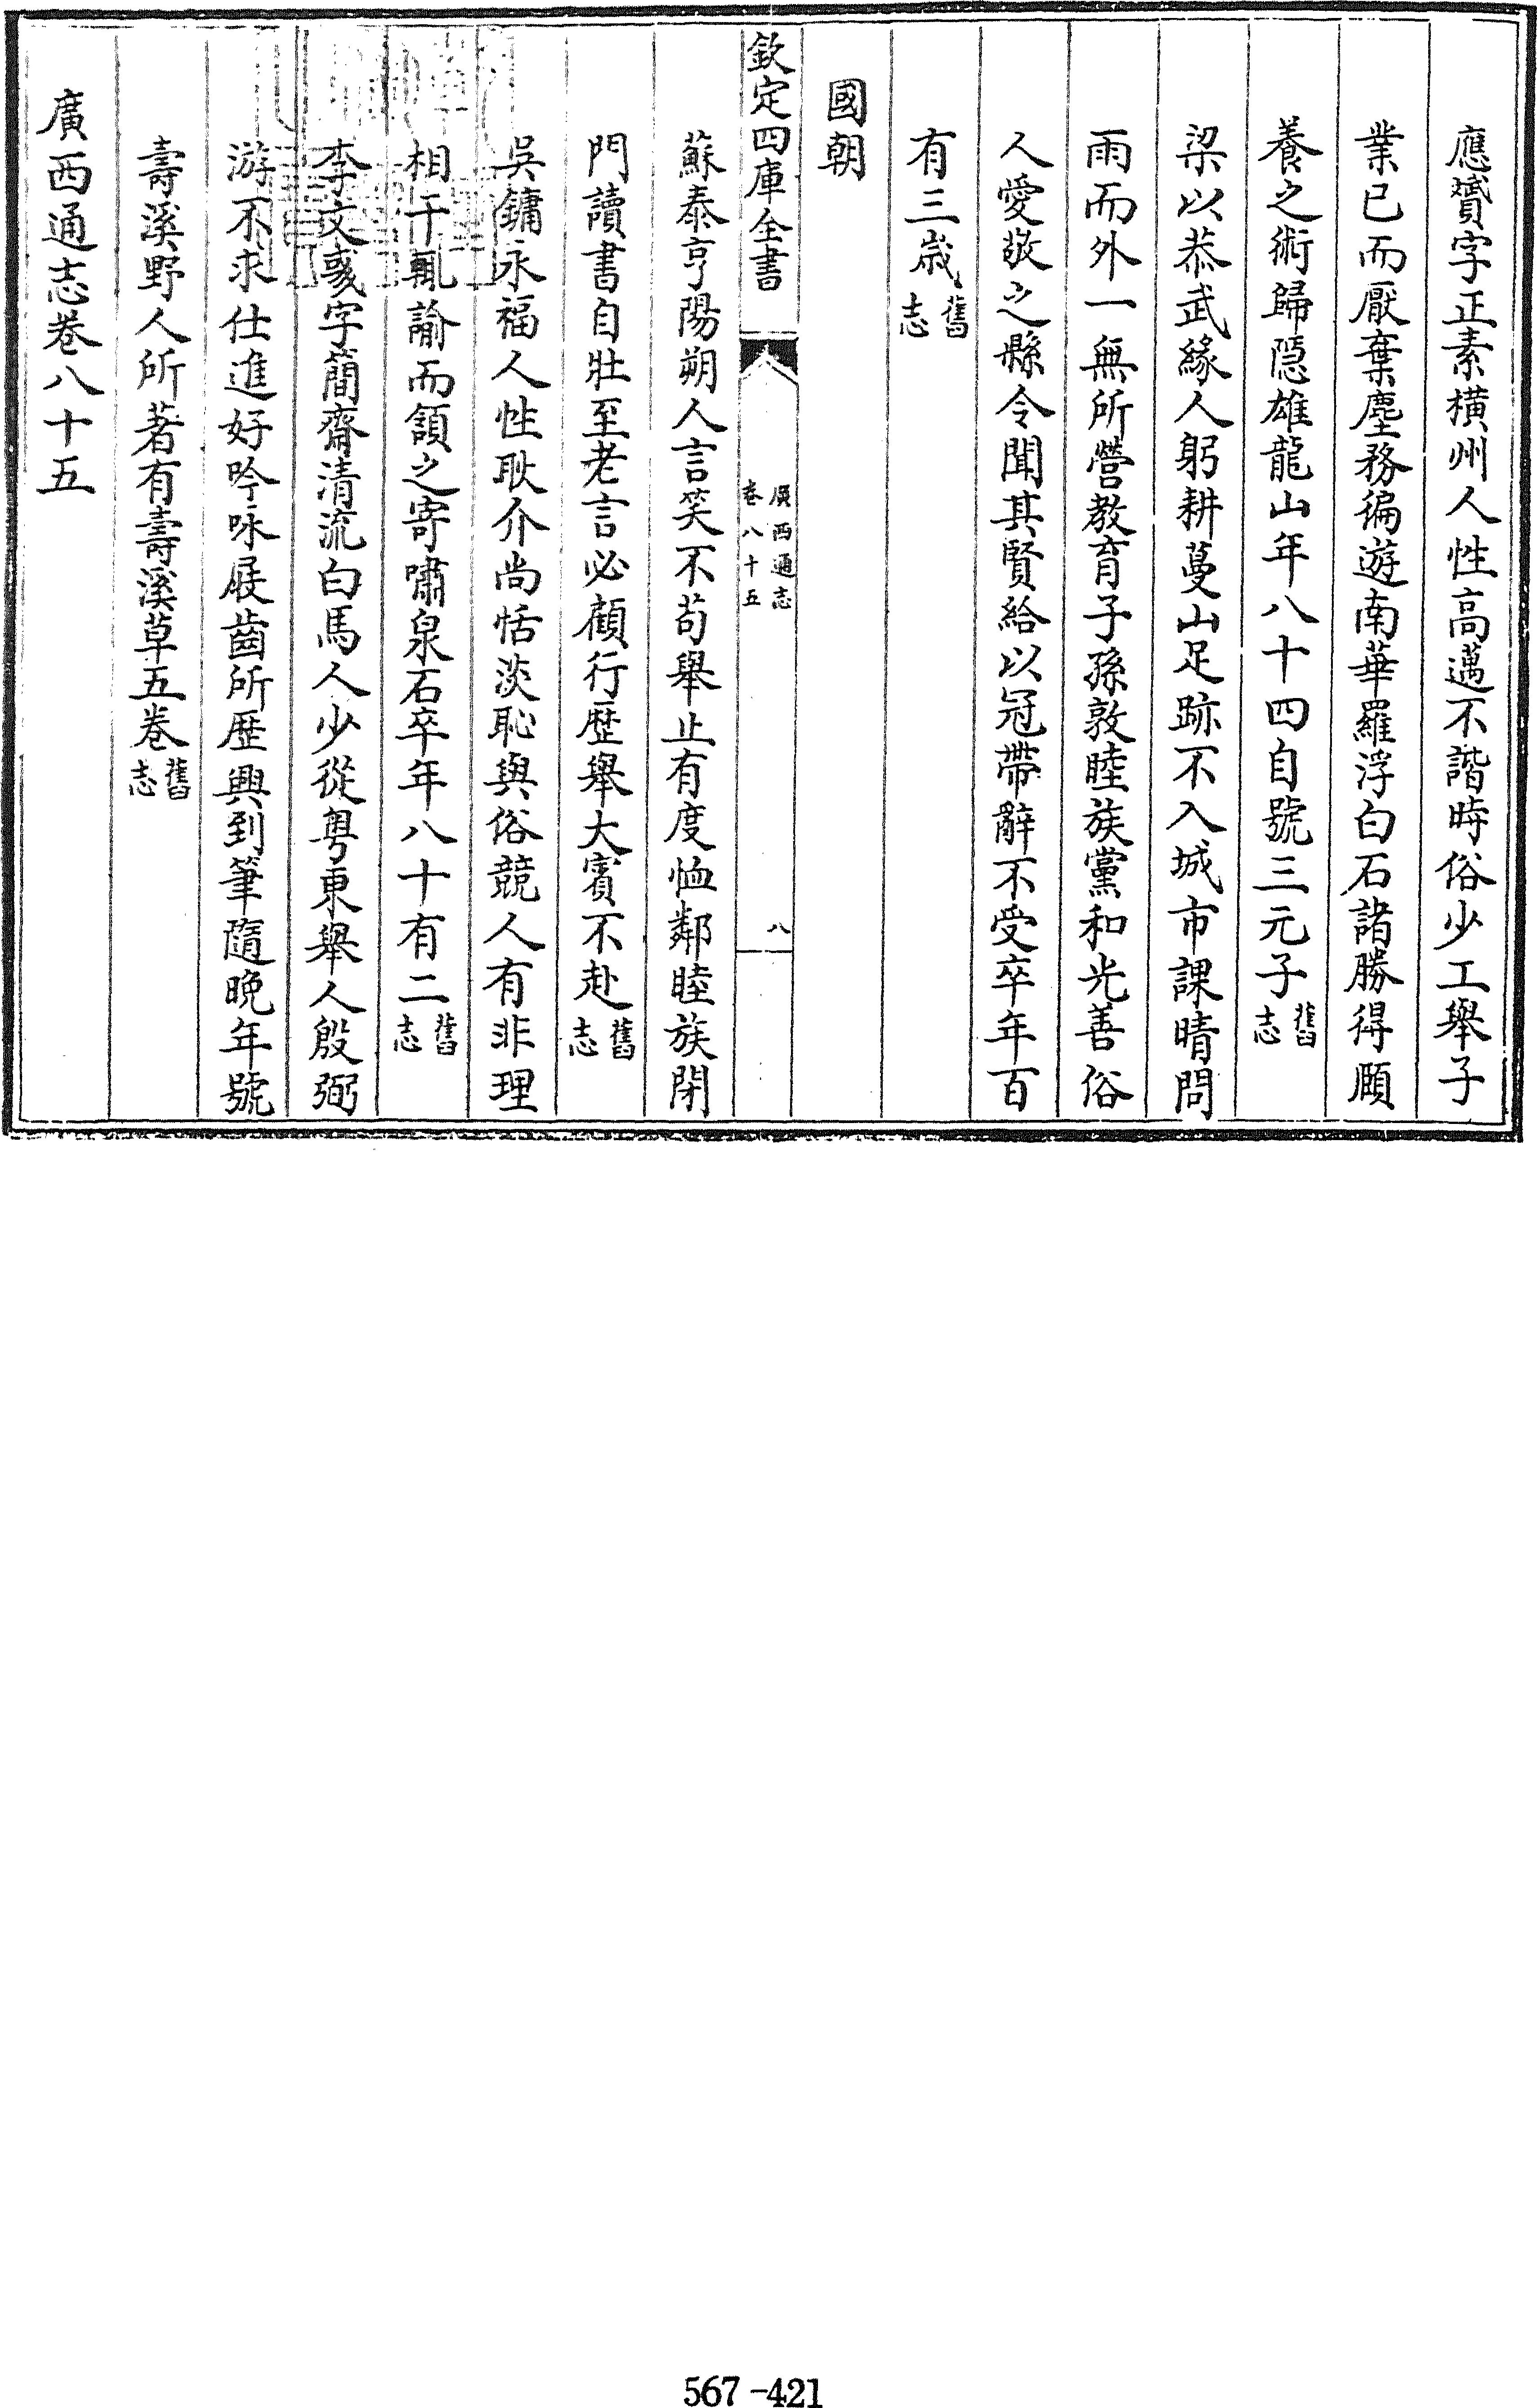 應贇字正素橫州人性高邁不諧時俗少工舉子
業已而厭棄塵務徧遊南華羅浮白石諸勝得頤
養之術歸隱雄龍山年八十四自號三元子舊志
梁以恭武緣人躬耕蔓山足跡不入城市課晴問
雨而外一無所營教育子孫敦睦族黨和光善俗
人愛敬之縣令聞其賢給以冠帶辭不受卒年百
有三歲舊志
國朝
欽定四庫全書
廣西通志
卷八十五
八
蘇泰亨陽朔人言笑不苟舉止有度恤鄰睦族閉
門讀書自壯至老言必顧行歴舉大賓不赴舊志
吳鏞永福人性耿介尚恬淡恥與俗競人有非理
相干輒諭而頷之寄嘯泉石卒年八十有二舊志
李文彧字簡齋清流白馬人少從粵東舉人殷弼
游不求仕進好吟咏屐齒所歴興到筆隨晚年號
壽溪野人所著有壽溪草五卷舊志
廣西通志卷八十五
567-421